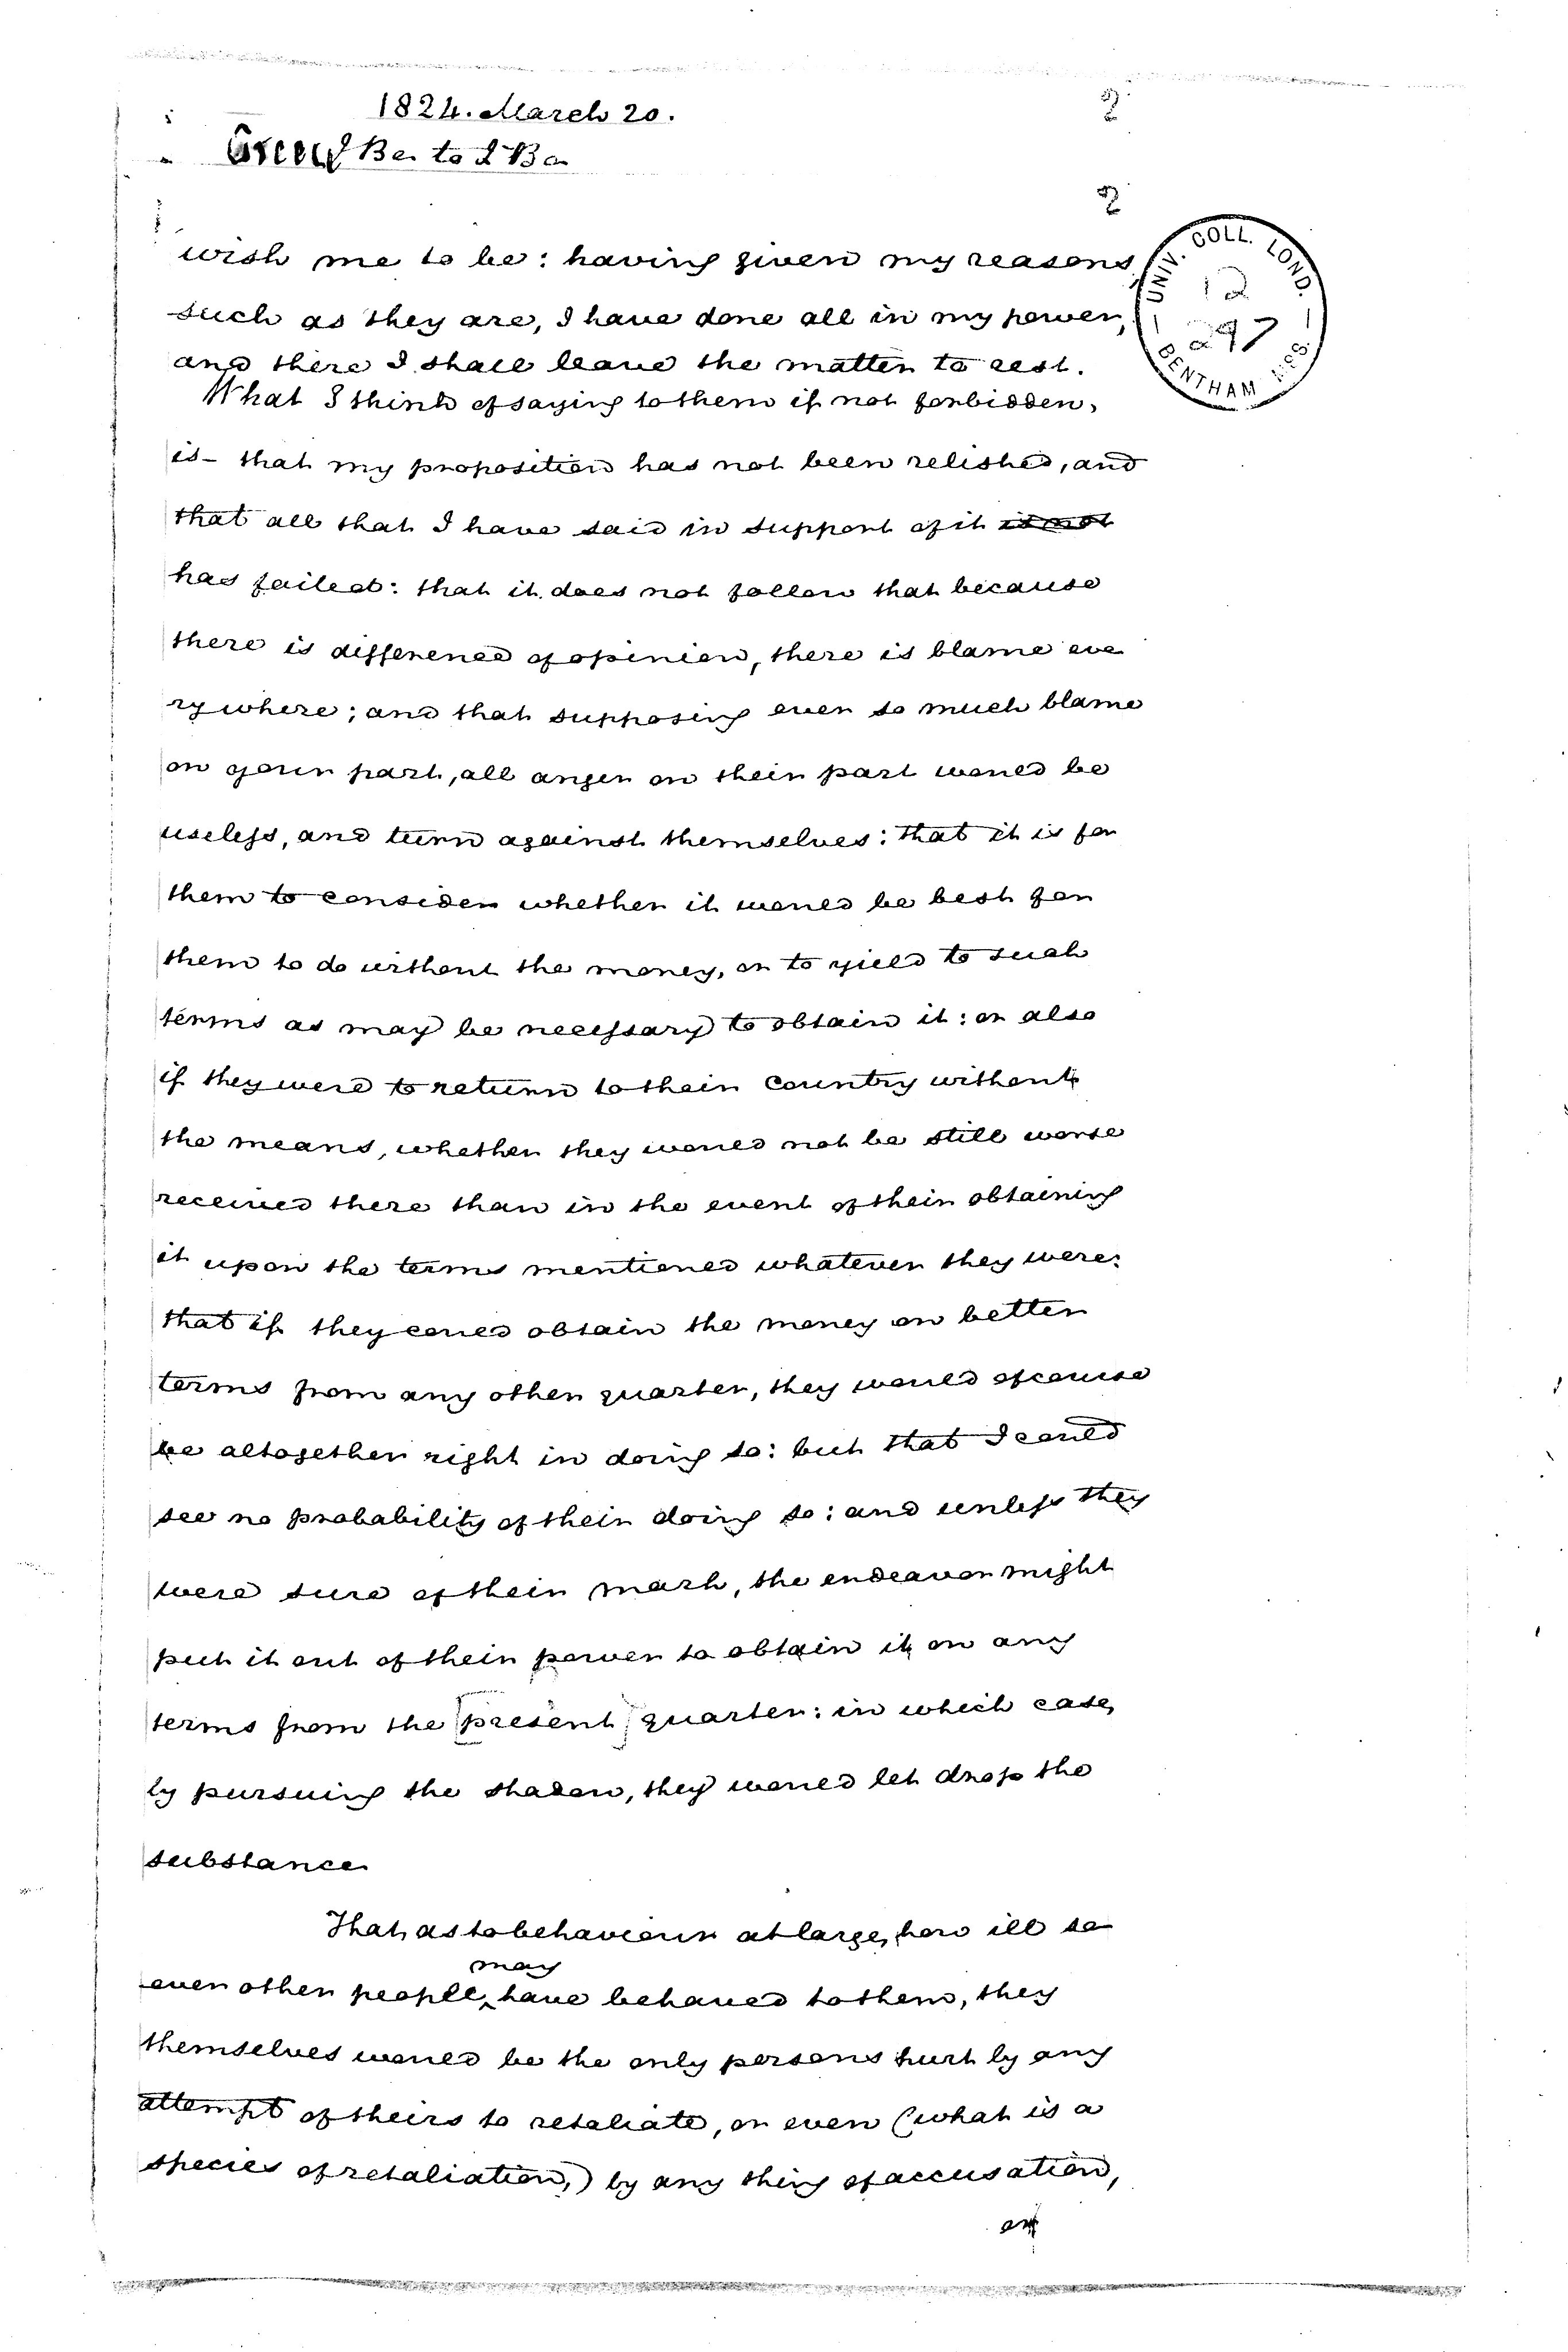 1824. March 20.
2
Greece Be. to L Ba
2
wish me to be: having given my reasons,
such as they are, I have done all in my power,
and there I shall leave the matter to rest.
What I think of saying to them if not forbidden,
is – that my proposition has not been relished, and
that all that I have said in support of it is not
has failed: that it does not follow that because
there is difference of opinion, there is blame eve
ry where; and that supposing ever so much blame
on your part, all anger on their part would be
useless, and turn against themselves: that it is for
them to consider whether it would be best for
them to do without the money, or to yield to such
terms as may be necessary to obtain it: or also
if they were to return to their country without
the means, whether they would not be still worse
received there than in the event of their obtaining
it upon the terms mentioned whatever they were:
that if they could obtain the money on better
terms from any other quarter, they would of course
be altogether right in doing so: but that I could
see no probability of their doing so: and unless they
were sure of their mark, the endeavor might
put it out of their power to obtain it on any
terms from the [present] quarter: in which case,
by pursuing the shadow, they would let drop the
substance
That, as to behaviour at large, how ill so
may
ever other people have behaved to them, they
themselves would be the only persons hurt by any
attempt of theirs to retaliate, or even (what is a
species of retaliation,) by any thing of accusation,
or
UNIV. COLL. LOND.
12
297
BENTHAM MSS.